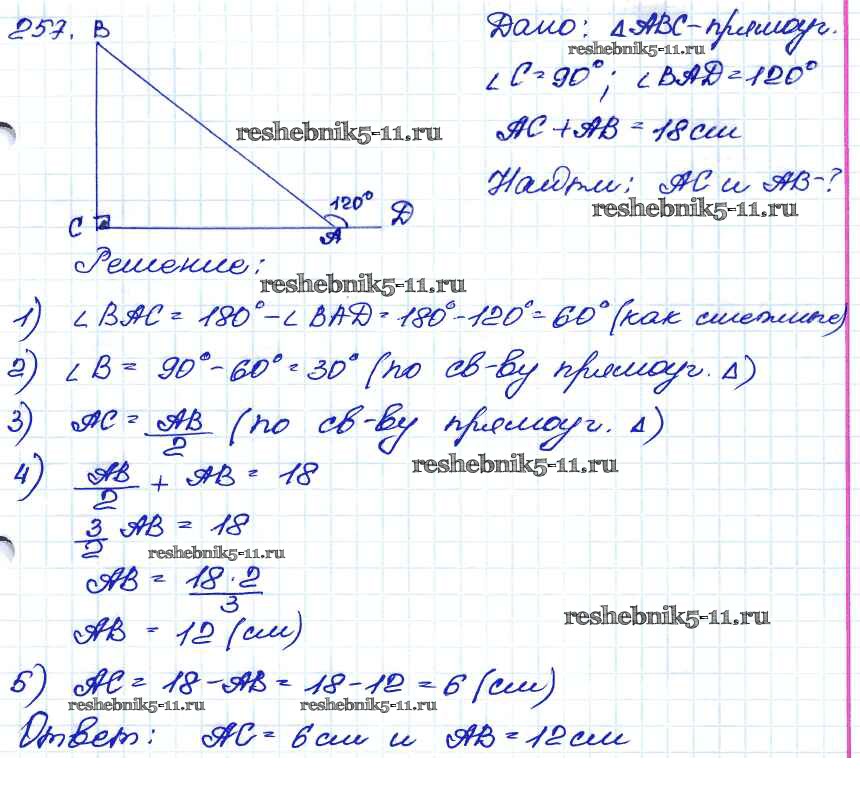 257. B
Дано: △ABC-прямоуг.
reshebnik5-11.ru
∠C=90°; ∠BAD=120°
reshebnik5-11.ru
AC+AB=18см
Найти: AC и AB-?
120°
reshebnik5-11.ru
C A D
Решение:
reshebnik5-11.ru
1) ∠BAC=180°-∠BAD=180°-120°=60° (как смежные)
2) ∠B=90°-60°=30° (по св-ву прямоуг. △)
3) AC=AB/2 (по св-ву прямоуг. △)
reshebnik5-11.ru
4) AB/2 + AB = 18
3/2 AB = 18
reshebnik5-11.ru
AB = 18·2/3
reshebnik5-11.ru
AB = 12 (см)
5) AC=18-AB=18-12=6 (см)
reshebnik5-11.ru reshebnik5-11.ru
Ответ: AC=6см и AB=12см